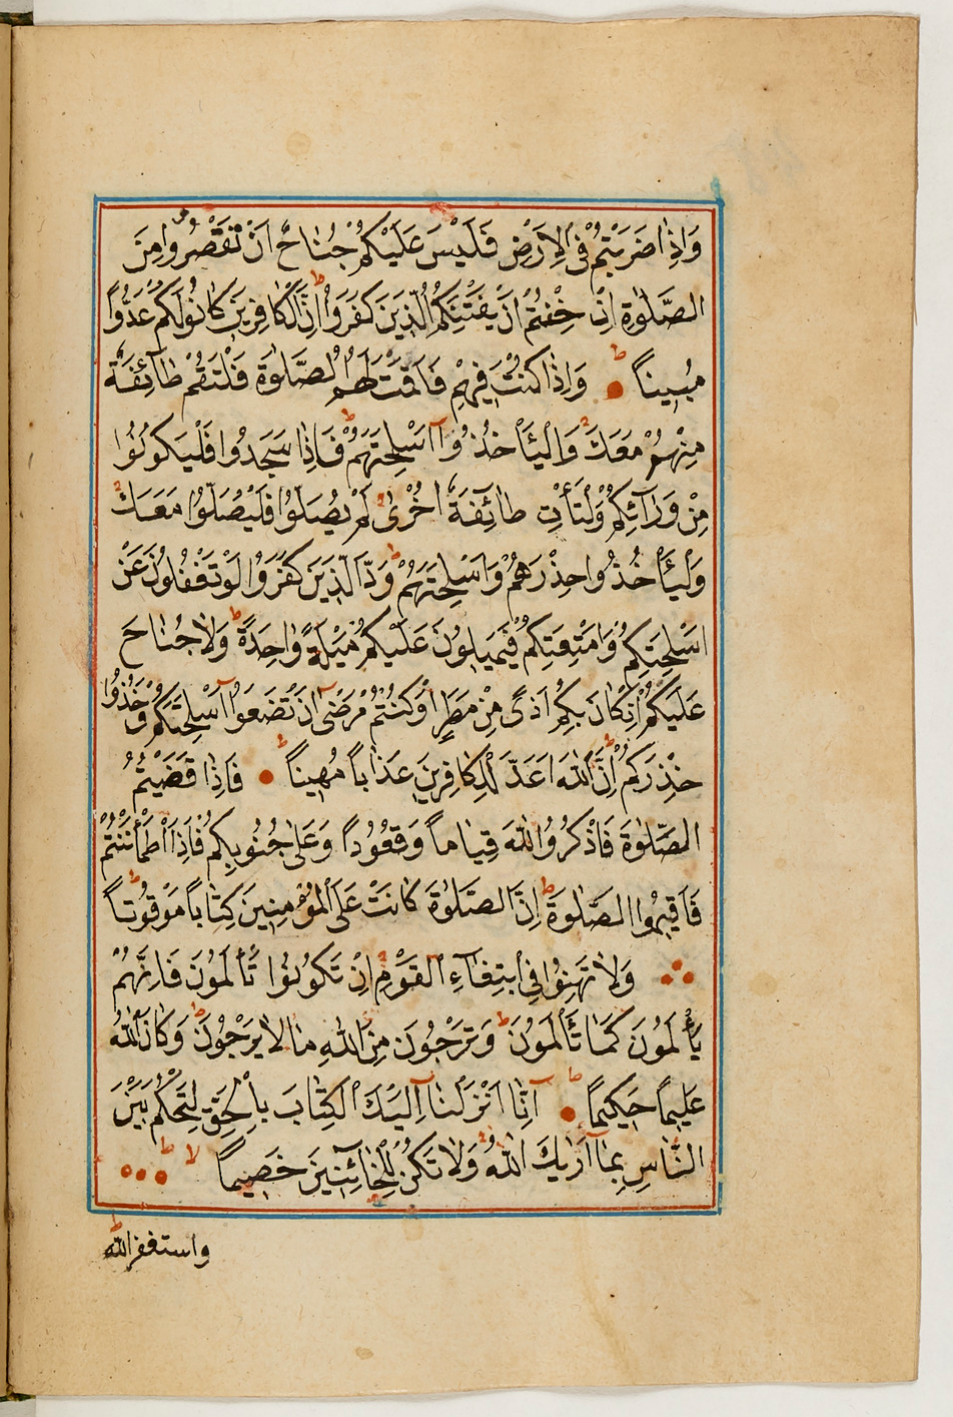 وَاِذَا ضَرَبْتُمْ فِى الْاَرْضِ فَلَيْسَ عَلَيْكُمْ جُنَاحٌ اَنْ تَقْصُرُوا مِنَ
الصَّلٰوةِ اِنْ خِفْتُمْ اَنْ يَفْتِنَكُمُ الَّذِينَ كَفَرُوا اِنَّ الْكَافِرِينَ كَانُوا لَكُمْ عَدُوًّا
مُبِينًا وَاِذَا كُنْتَ فِيهِمْ فَاَقَمْتَ لَهُمُ الصَّلٰوةَ فَلْتَقُمْ طَائِفَةٌ
مِنْهُمْ مَعَكَ وَالْيَأْخُذُوا اَسْلِحَتَهُمْ فَاِذَا سَجَدُوا فَلْيَكُونُوا
مِنْ وَرَآئِكُمْ وَلْتَأْتِ طَائِفَةٌ اُخْرٰى لَمْ يُصَلُّوا فَلْيُصَلُّوا مَعَكَ
وَلْيَأْخُذُوا حِذْرَهُمْ وَاَسْلِحَتَهُمْ وَدَّ الَّذِينَ كَفَرُوا لَوْ تَغْفُلُونَ عَنْ
اَسْلِحَتِكُمْ وَاَمْتِعَتِكُمْ فَيَمِيلُونَ عَلَيْكُمْ مَيْلَةً وَاحِدَةً وَلَا جُنَاحَ
عَلَيْكُمْ اِنْ كَانَ بِكُمْ اَذًى مِنْ مَطَرٍ اَوْ كُنْتُمْ مَرْضٰى اَنْ تَضَعُوا اَسْلِحَتَكُمْ وَخُذُوا
حِذْرَكُمْ اِنَّ اللّٰهَ اَعَدَّ لِلْكَافِرِينَ عَذَابًا مُهِينًا فَاِذَا قَضَيْتُمُ
الصَّلٰوةَ فَاذْكُرُوا اللّٰهَ قِيَامًا وَقُعُودًا وَعَلٰى جُنُوبِكُمْ فَاِذَا اطْمَأْنَنْتُمْ
فَاَقِيمُوا الصَّلٰوةَ اِنَّ الصَّلٰوةَ كَانَتْ عَلَى الْمُؤْمِنِينَ كِتَابًا مَوْقُوتًا
وَلَا تَهِنُوا فِى ابْتِغَآءِ الْقَوْمِ اِنْ تَكُونُوا تَأْلَمُونَ فَاِنَّهُمْ
يَأْلَمُونَ كَمَا تَأْلَمُونَ وَتَرْجُونَ مِنَ اللّٰهِ مَا لَا يَرْجُونَ وَكَانَ اللّٰهُ
عَلِيمًا حَكِيمًا اِنَّا اَنْزَلْنَا اِلَيْكَ الْكِتَابَ بِالْحَقِّ لِتَحْكُمَ بَيْنَ
النَّاسِ بِمَا اَرٰيكَ اللّٰهُ وَلَا تَكُنْ لِلْخَائِنِينَ خَصِيمًا لا
واستغفر الله